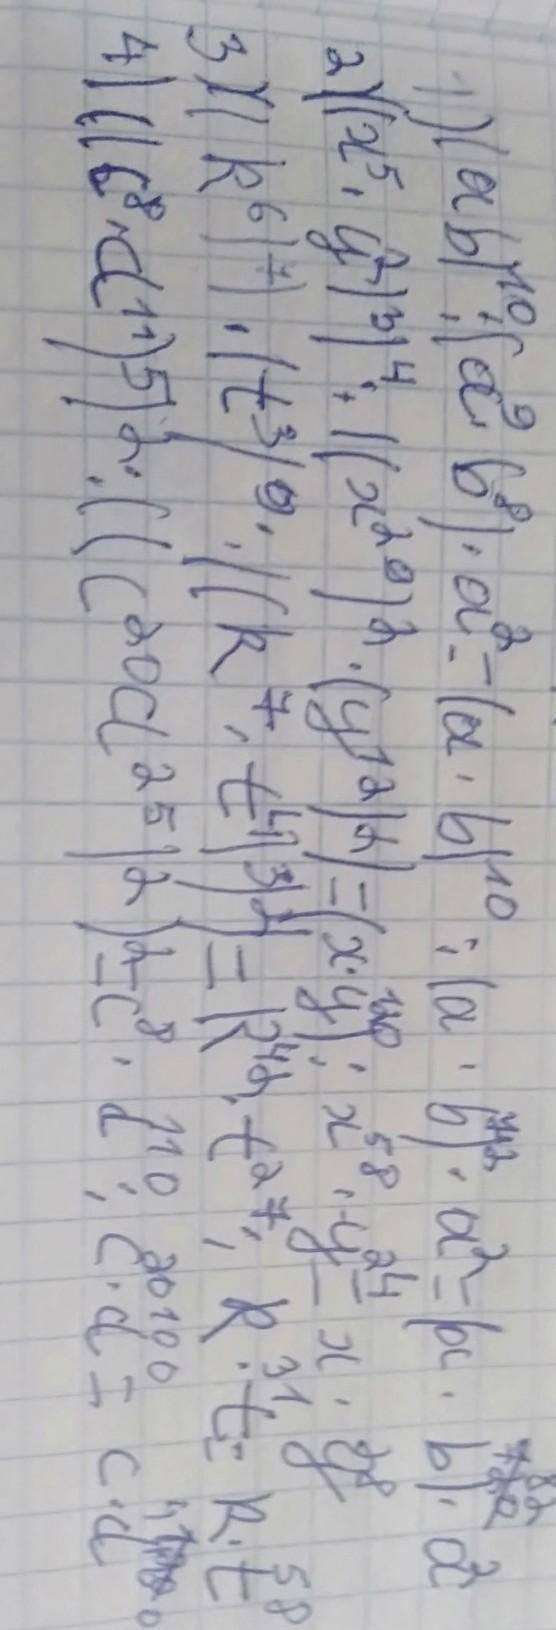 1) (ab)¹⁰ : (a⁹ b⁸) · a² = (a · b)¹⁰ : (a · b)⁷² · a² = (a · b)⁸² · a²
2) ((x⁵ · y²)³)⁴ : ((x²⁹)² · (y¹²)²) = (x · y)¹²⁰ : x⁵⁸ · y²⁴ = x · y²⁸
3) ((k⁶)⁷) · (t³)⁹ : ((k⁷ · t⁴)³)² = k⁴² · t²⁷ : k · t³¹ = k · t⁵⁸
4) ((c⁸ · d¹¹)⁵)² : ((c²⁰ d²⁵)²)² = c⁸ · d¹¹⁰ : c · d²⁰¹⁰⁰ = c · d